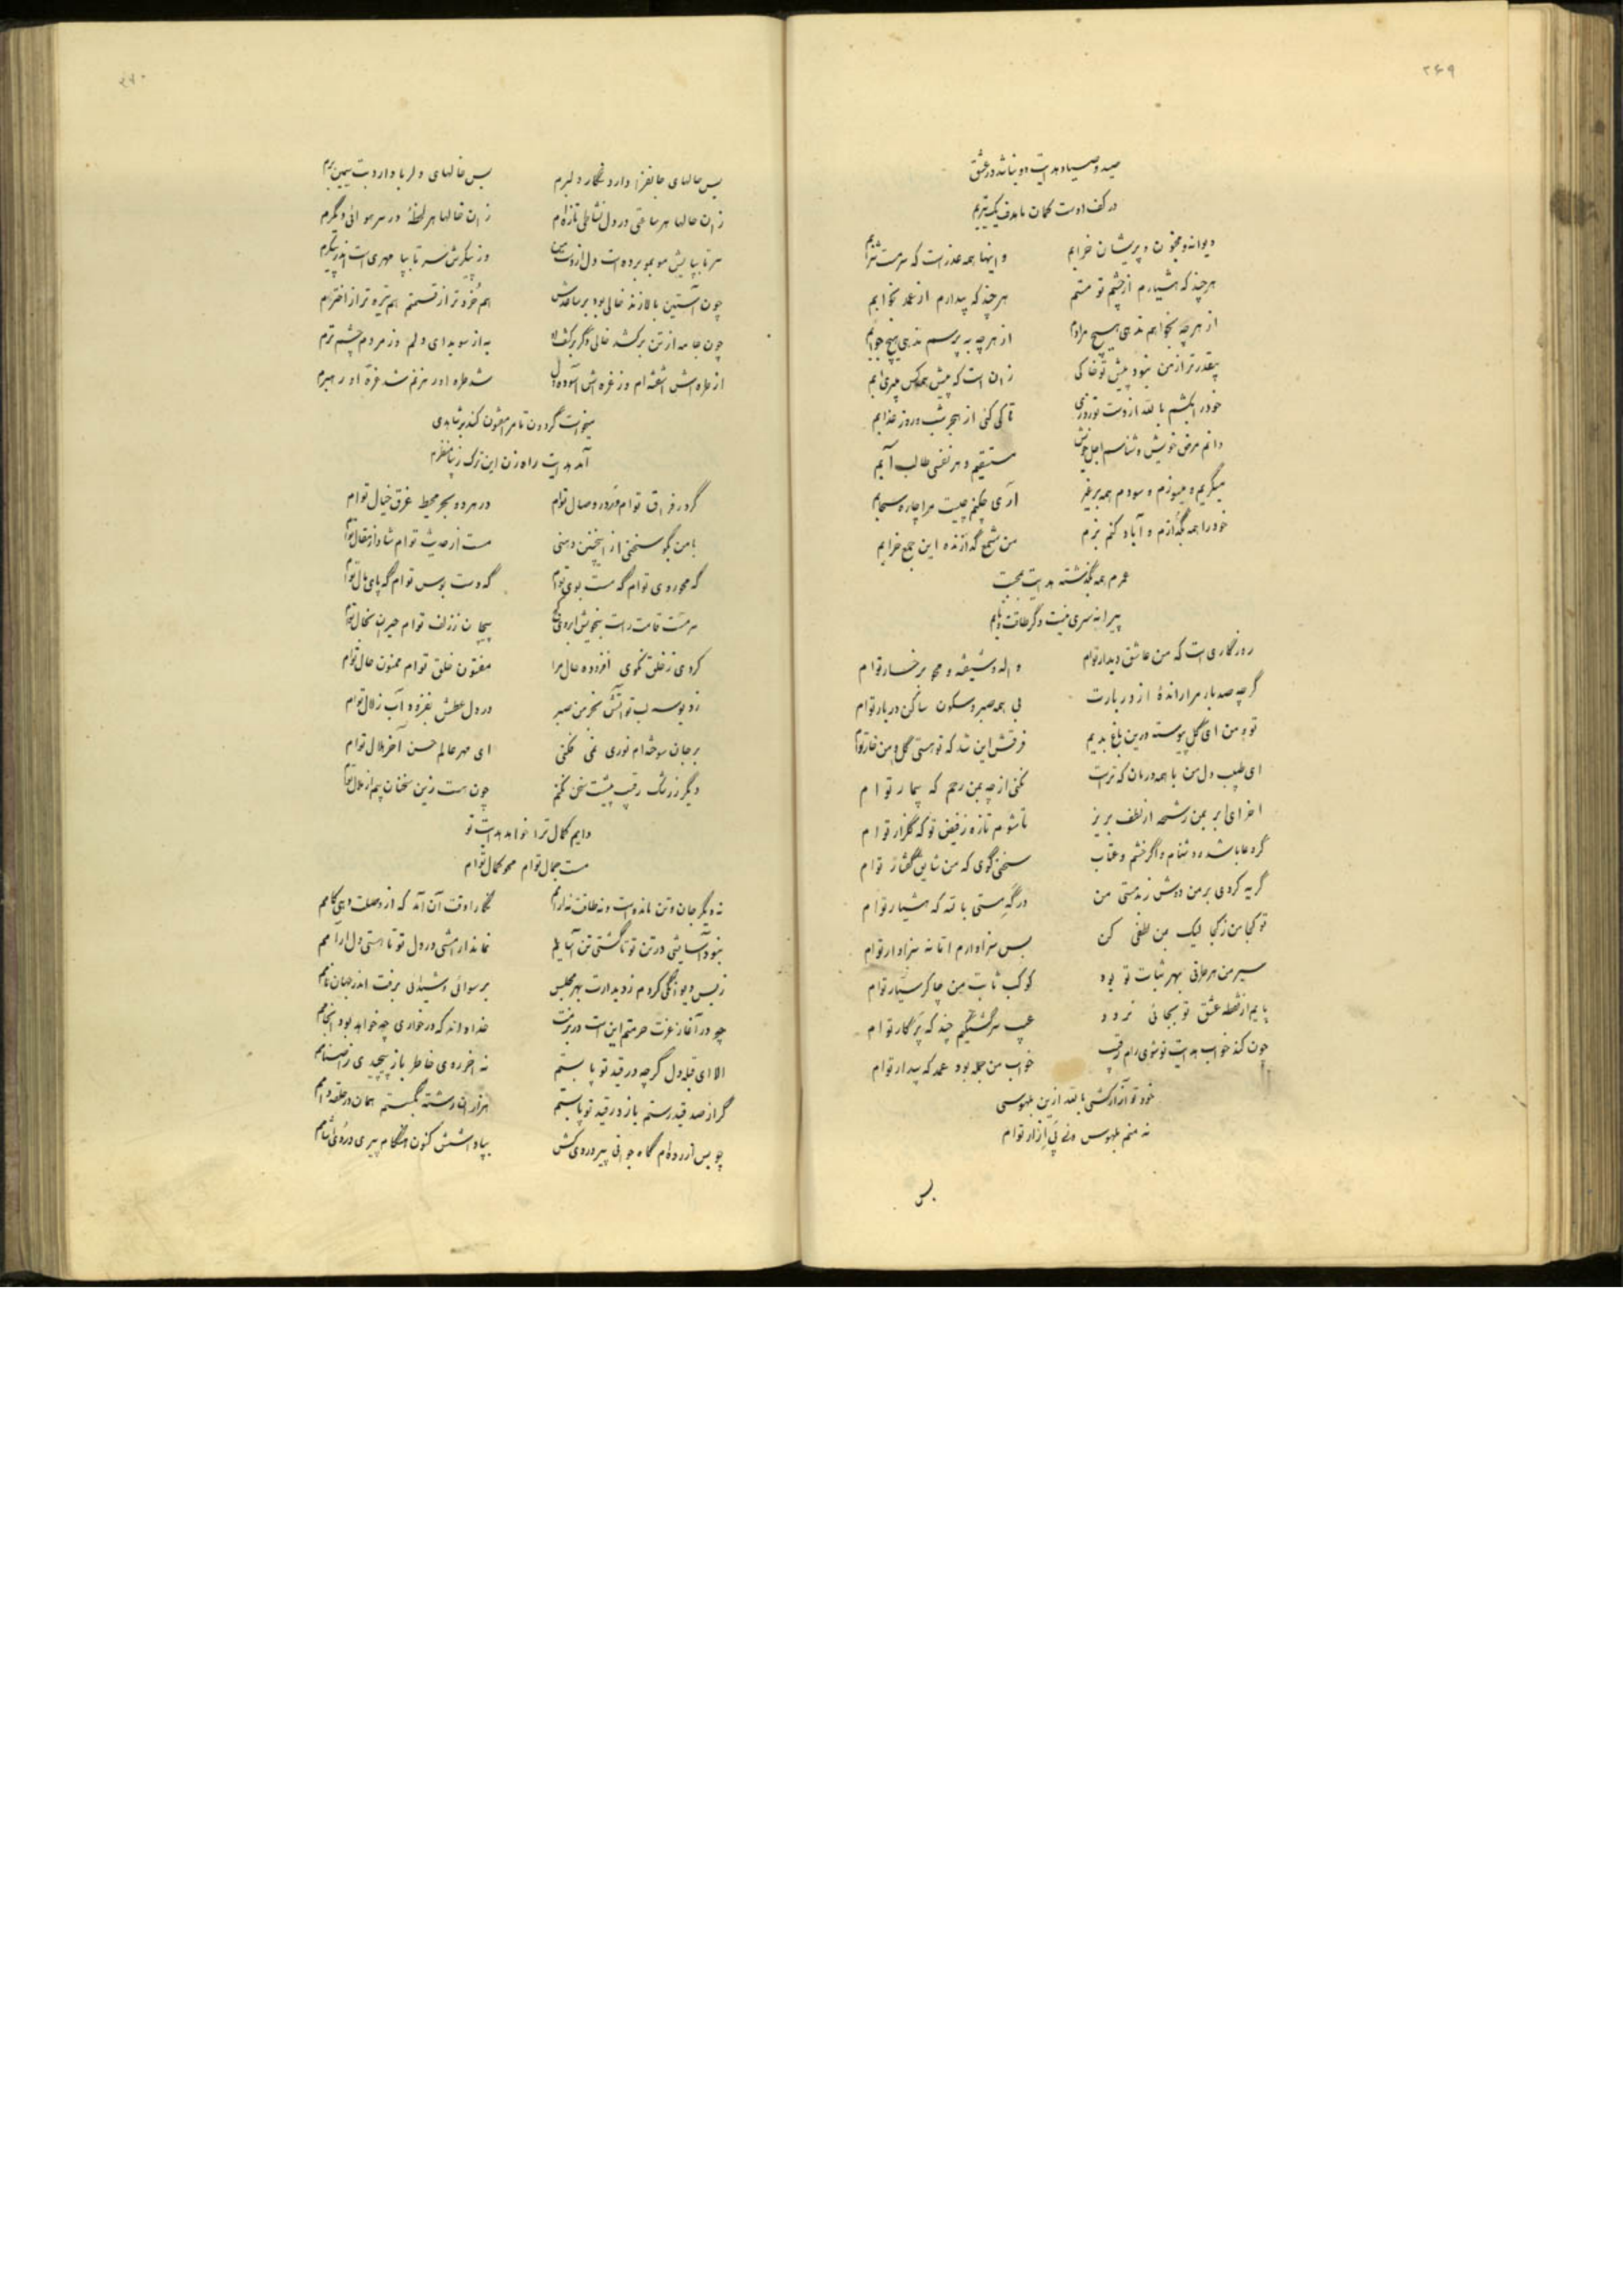 ۲۶۹
صید و صیاد هدایت دو نباشد در عشق
در کف اوست کمان ما هدف یک تیریم
دیوانه و مجنون و پریشان خرابم
و اینها همه عذر است که سرمست شرابم
هرچند که هشیارم از چشم تو مستم
هرچند که بیدارم از بخوابم
از هرچه بخواهم ندهی هیچ مرادم
از هرچه به پرسم ندهی هیچ جوابم
بیقدرتر از من نبود پیش تو خاکی
زان است که پیش همه کس
خود را بکشم بالله از دست تو روزی
تا کی کنی از هجر شب و روز عذابم
دانم مرض خویش و شناسم اجل خویش
مستسقیم و هر نفسی طالب آبم
میگریم و میسوزم و سودم همه بر غیر
آری چکنم چیست مرا چاره سحابم
خود را همه بگدازم و آباد کنم بزم
من شمع گدازنده این جمع خرابم
عمرم همه بگذشته هدایت بمحبت
پیرانه سری نیست دگر طاقت و تابم
روزگاری است که من عاشق دیدار توام
واله و شیفته و محو برخسار توام
گرچه صد بار مرا راندهٔ از دربارت
بی همه صبر و سکون ساکن دربار توام
تو و من ای گل پیوسته درین باغ بدیم
فرقش این شد که تو هستی گل و من خار توام
ای طبیب دل من با همه درمان که تراست
نکنی از چه بمن رحم که بیمار توام
اخر ای ابر بمن رشحه از لطف بریز
تا شوم تازه ز فیض تو که گلزار توام
گر دعا باشد و دشنام و اگر خشم و عتاب
سخنی گوی که من شایق گفتار توام
گریه کردی بر من دوش ز بدمستی من
در گه مستی بالله که هشیار توام
تو کجا من ز کجا لیک بمن لطفی کن
بس سزاوارم اما نه سزاوار توام
سیر من هر طرفی بهر ثبات تو بود
کوکب ثابت من چاکر سیار توام
پایم از نقطه عشق تو بجائی نرود
عجب سرگشتگیم چند که پرگار توام
چون کند خواب هدایت تو شوی رام رقیب
خواب من جمله بود عمد که بیدار توام
خود تو آزار کشی بالله ازین بلهوسی
نه منم بلهوس و نه پی آزار توام
بس
۲۷۰
بس حالهای جانفزا دارد نگار دلبرم
بس خالهای دلربا دارد بت سیمین برم
زان حالها هر ساعتی در دل نشاطی تازه‌ام
زان خالها هر لحظهٔ در سر هوائی دیگرم
سر تا بپایش مو بمو برده است دل از دست من
وز پیکرش سر تا بپا مهری است اندر پیکرم
چون آستین بالا زند خالی بود بر ساعدش
هم خردتر از قسمتم هم تیره‌تر از اخترم
چون جامه از تن برکشد خالی دگر بر کتف او
به از سویدای دلم وز مردم چشم ترم
از طره‌اش اشفته‌ام وز غره‌اش آسوده دل
شد طره او رهزنم شد غرهٔ او رهبرم
میخواست گردون تا مرا مفتون کند بر شاهدی
آمد هدایت راه زن این ترک زیبا منظرم
گر در فراق توام ور در وصال توام
در هر دو بحر محیط غرق خیال توام
با من بگو سخنی از اینچنین دهنی
مست از حدیث توام شاد از مقال توام
گه محو روی توام گه مست بوی توام
گه دست بوس توام گه پای مال توام
سرمست قامت راست بنمویش ابروی کج
پیچان ز زلف توام حیران خال توام
کردی ز خلق نکوی افزوده حال مرا
مفتون خلق توام ممنون حال توام
زد بوسه لب تو آتش بخرمن صبر
در دل عطش بفزود آب زلال توام
بر جان سوخته‌ام نوری نمی فکنی
ای مهر عالم حسن آخر هلال توام
دیگر ز رشک رقیب پیشت سخن نکنم
چون هست زین سخنان بیم از ملال توام
دایم کمال ترا خواهد هدایت تو
مست جمال توام محو کمال توام
نه دیگر جان و تن مانده‌است و نه طاقت نه ارامم
نگارا وقت آن آمد که از وصلت دهی کامم
نبود آسایشی در تن تو تا گشتی تن آسایم
نماند ارامشی در دل تو تا هستی دل ارامم
ز بس دیوانگی کردم ز دیدارت بهر مجلس
برسوائی و شیدائی برفت اندر جهان نامم
چو در آغاز عزت حرمتم این است در بزمت
خدا داند که در خواری چه خواهد بود انجامم
الا ای قبله دل گرچه در قید تو پا بستم
نه اخر روی خاطر باز پیچیدی ز اصنامم
گر از صد قید رستم باز در قید تو پابستم
هزاران رشته بگسستم همان در حلقه دامم
چو بس ازرده‌ام گاه جوانی پیر دردی کش
بپاداشش کنون هنگام پیری دردی اشامم